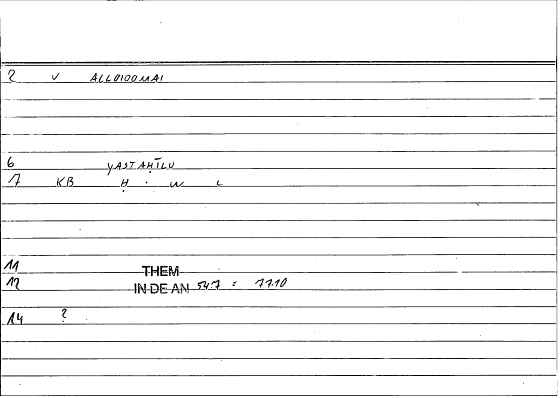 2 v ALLOIOOMAI
6 yASTAḤĪLU
7 KB Ḥ · W L
11 THEM
12 IN DE AN 54.7 = 77.10
14 ?